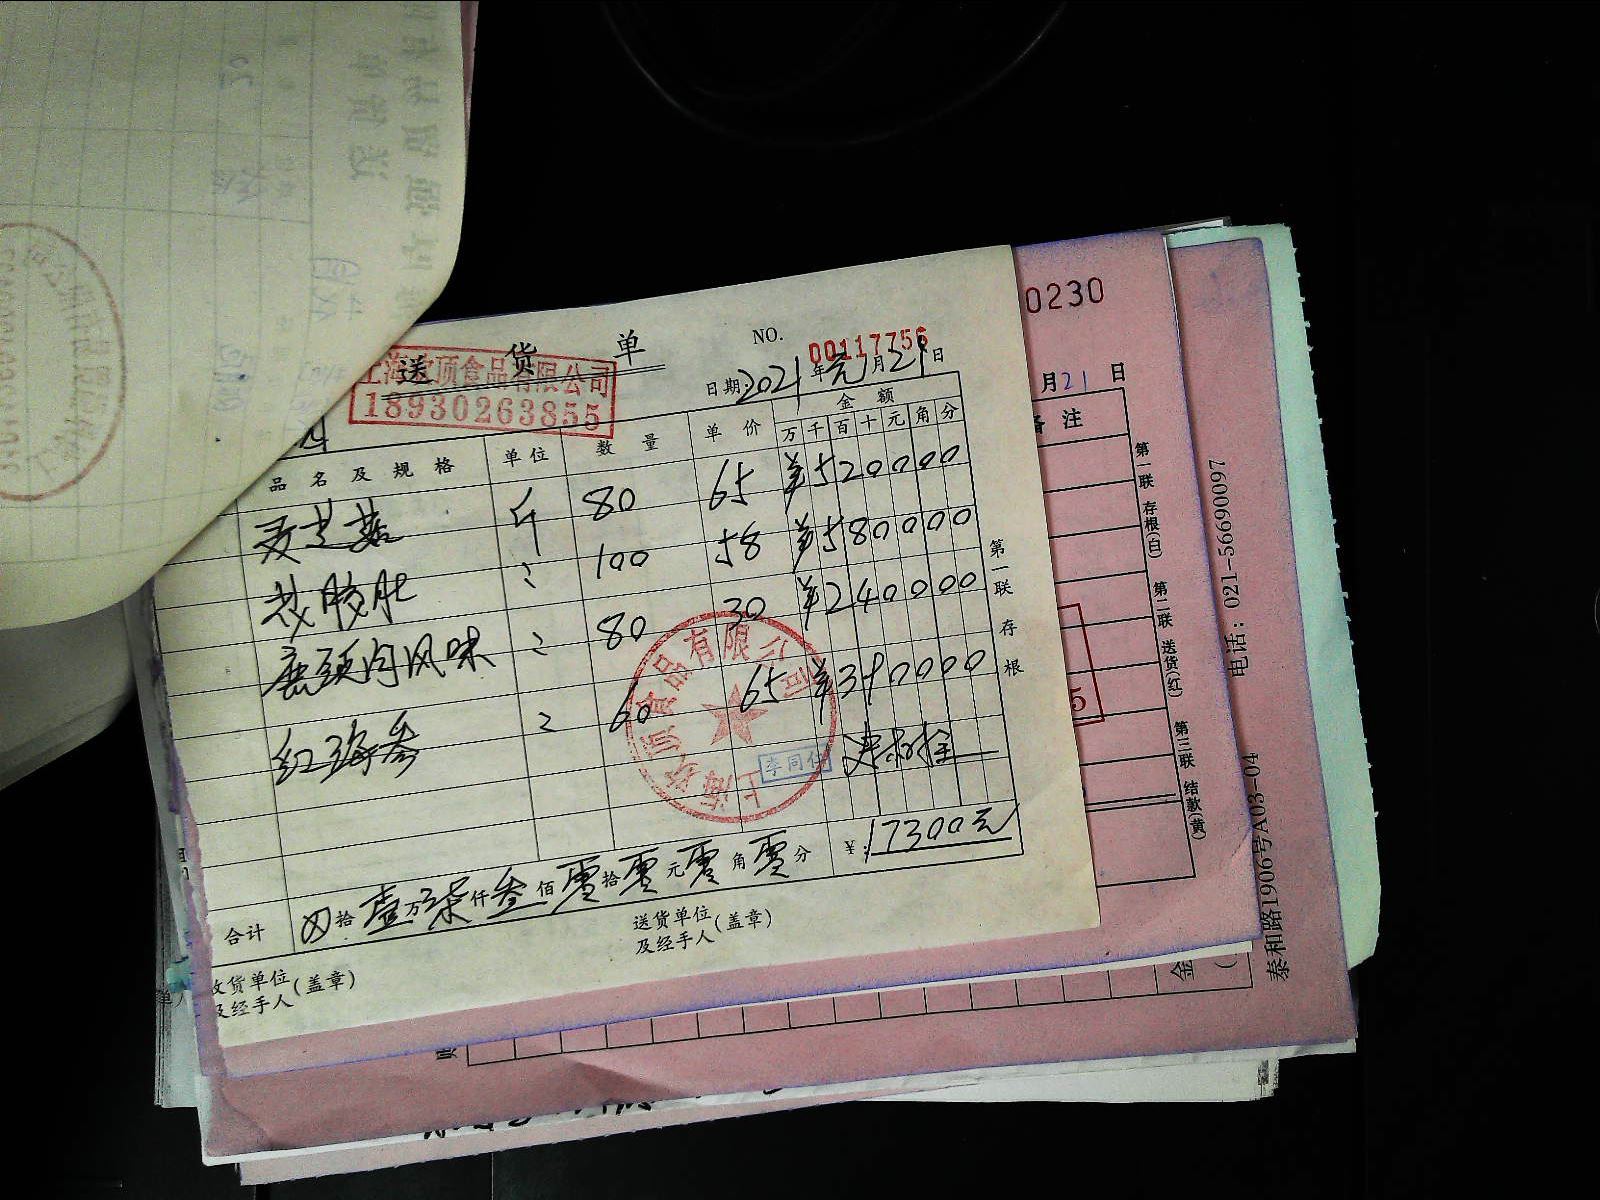 送货单
NO. 00117756
上海 顶食品有限公司
18930263855
日期:2021年元月21日
品名及规格 单位 数量 单价 金额
万千百十元角分
斤 80 65 ¥520000
〃 100 58 ¥580000
鹿颈肉风味 〃 80 30 ¥240000
红海参 〃 60 65 ¥390000
李同仁
合计 ⊗拾壹万柒仟叁佰零拾零元零角零分 ¥:17300元
收货单位及经手人(盖章)
送货单位及经手人(盖章)
第一联 存根
0230
月21日
备注
第一联 存根(白)
第二联 送货(红)
第三联 结款(黄)
电话:021-56690097
泰和路1906号A03-04